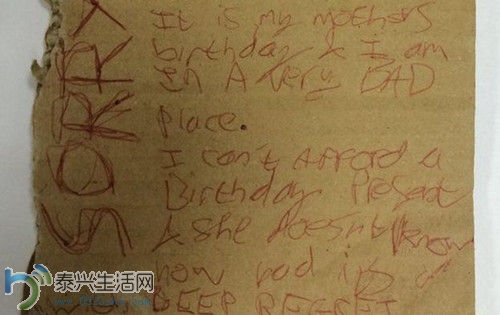 SORRY
It is my mothers
birthday & I am
in A very BAD
place.
I can't Afford a
Birthday Present
& she doesnt know
how bad it is
DEEP REGRET
泰兴生活网